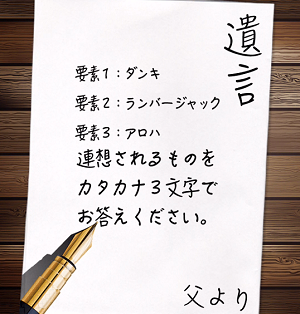 遺言
要素1：ダンキ
要素2：ランバージャック
要素3：アロハ
連想されるものを
カタカナ3文字で
お答えください。
父より